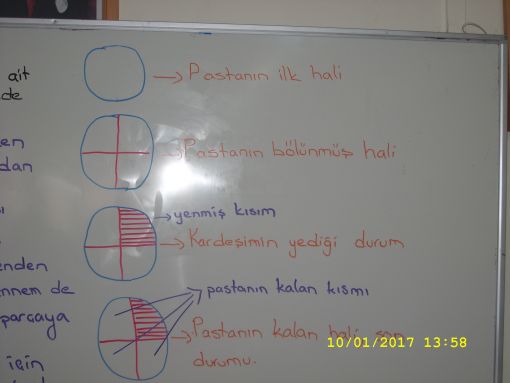 ait
de
→ Pastanın ilk hali
en
dan
→ Pastanın bölünmüş hali
→ yenmiş kısım
→ Kardeşimin yediği durum
enden
nnem de
parçaya
için
→ pastanın kalan kısmı
→ Pastanın kalan hali son
durumu.
10/01/2017 13:58